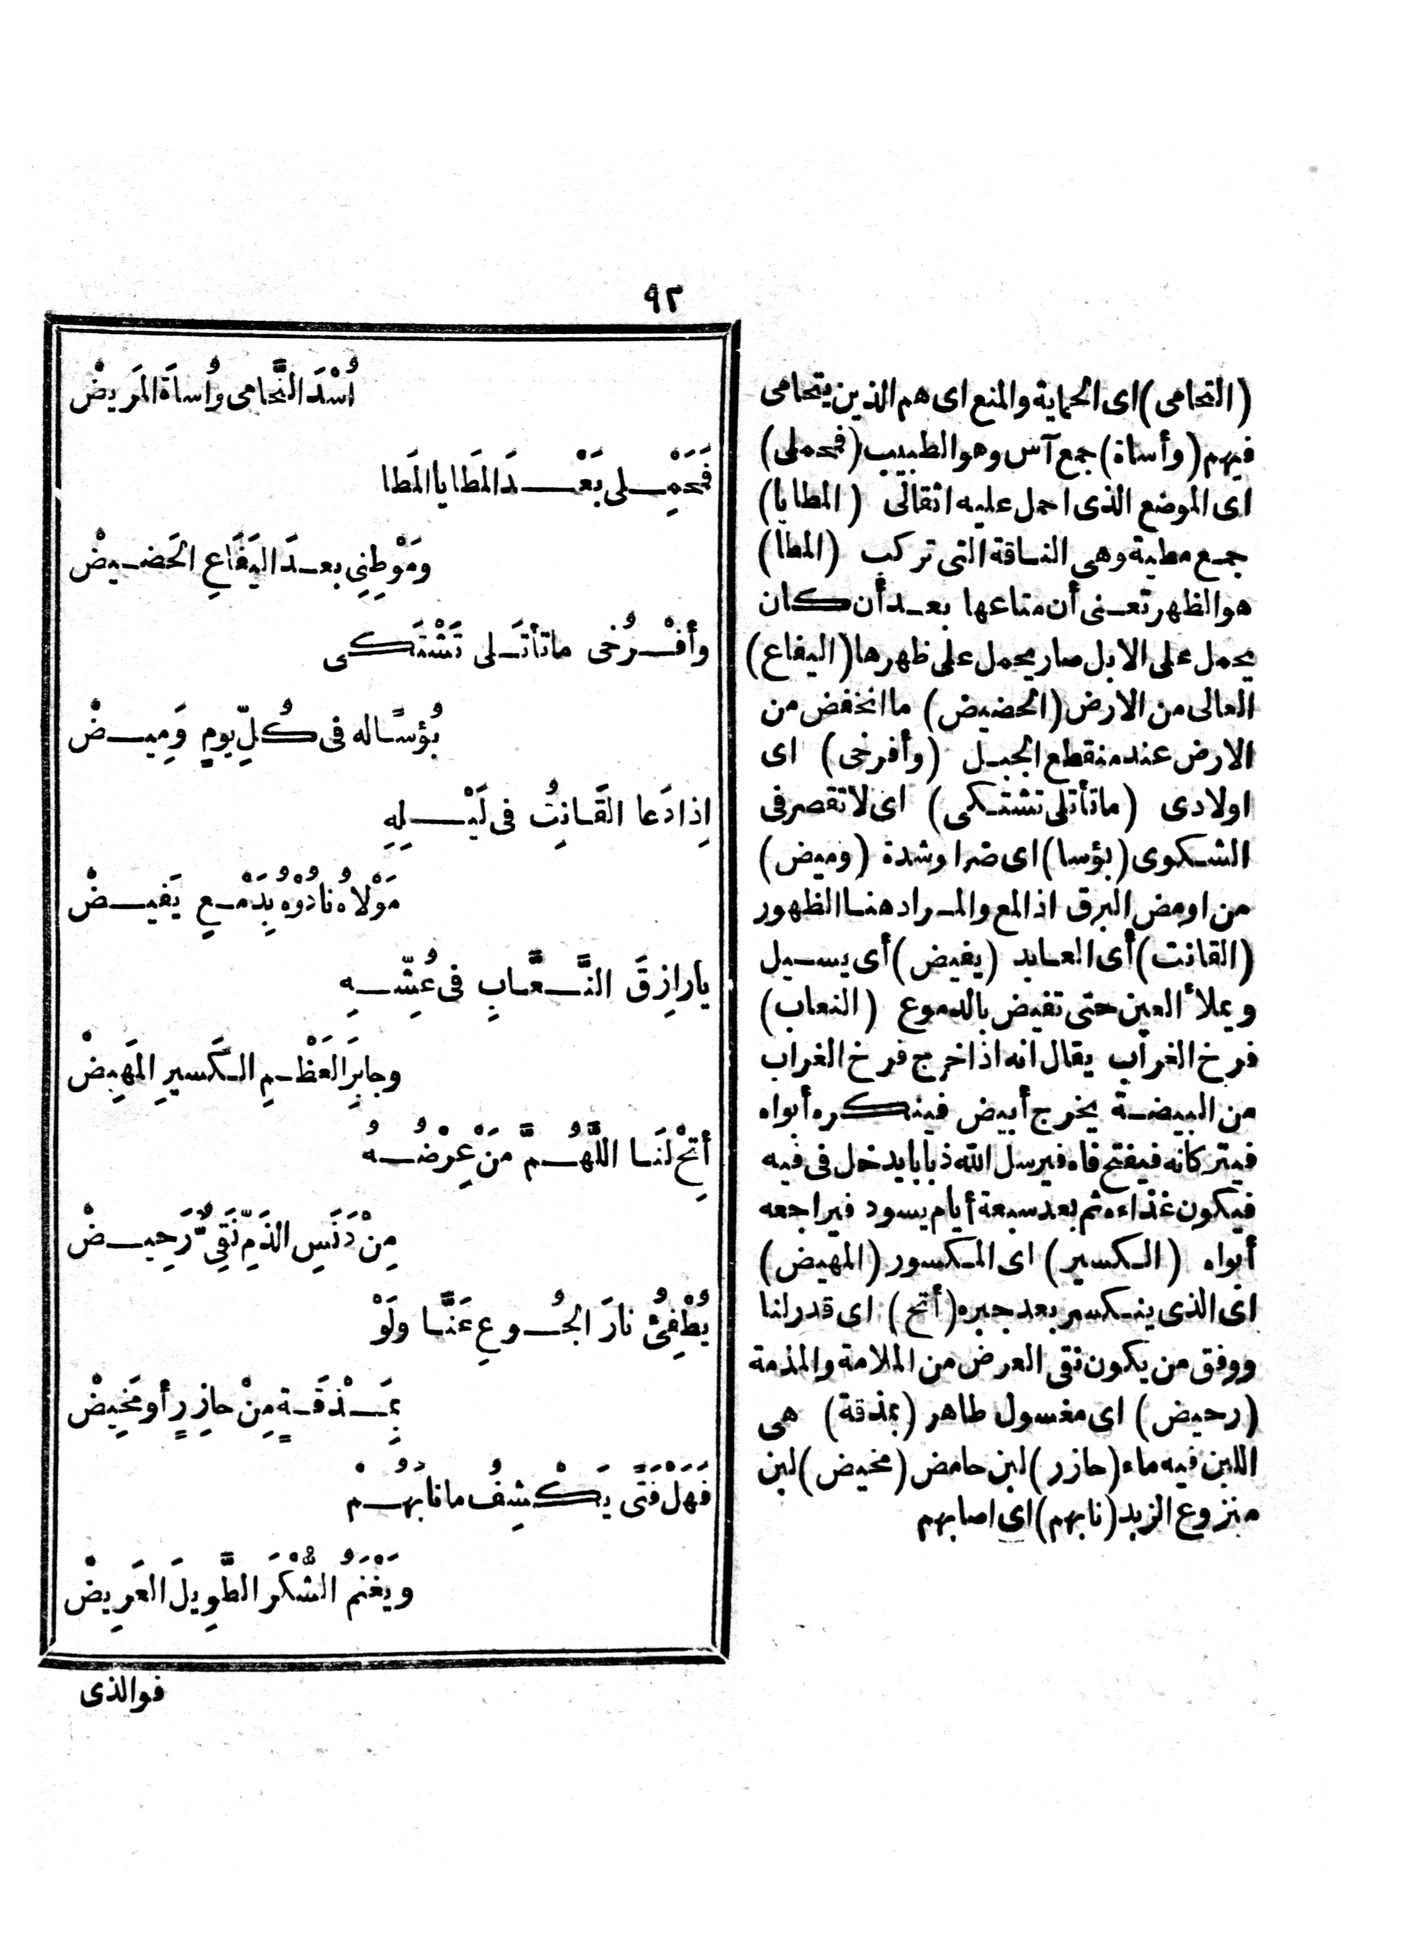 ٩٢
(التحامى) اى الحماية والمنع اى هم الذين يتحامى
فيهم (وأساة) جمع آس وهو الطبيب (فمحملى)
اى الموضع الذى احمل عليه اثقالى (المطايا)
جمع مطية وهى الناقة التى تركب (المطا)
هو الظهر تعنى أن متاعها بعد أن كان
يحمل على الابل صار يحمل على ظهرها (اليفاع)
العالى من الارض (الحضيض) ما انخفض من
الارض عند منقطع الجبل (وأفرخى) اى
اولادى (ماتأتلى تشتكى) اى لا تقصر فى
الشكوى (بؤسا) اى ضرا وشدة (وميض)
من اومض البرق اذا لمع والمراد هنا الظهور
(القانت) أى العابد (يفيض) أى يسيل
ويملأ العين حتى تفيض بالدموع (النعاب)
فرخ الغراب يقال انه اذا خرج فرخ الغراب
من البيضة يخرج أبيض فينكره أبواه
فيتركانه فيفتح فاه فيرسل الله ذبابا يدخل فى فيه
فيكون غذاءه ثم بعد سبعة أيام يسود فيراجعه
أبواه (الكسير) اى المكسور (المهيض)
اى الذى ينكسر بعد جبره (أتح) اى قدر لنا
ووفق من يكون نقى العرض من الملامة والمذمة
(رحيض) اى مغسول طاهر (بمذقة) هى
اللبن فيه ماء (حازر) لبن حامض (مخيض) لبن
منزوع الزبد (نابهم) اى اصابهم
أُسْدَ التَّحامى وأُساةَ المَريضْ
فَمَحْمِلى بَعْدَ المَطايا المَطا
ومَوْطِنِي بعدَ اليَفَاعِ الحَضيضْ
وأفْرُخى ماتأتَلى تَشْتَكى
بُؤسًاله فى كُلِّ يومٍ وَمِيضْ
اِذا دَعا القَانِتُ فى لَيْلِهِ
مَوْلاهُ نادُوْهُ بِدَمْعٍ يَفيضْ
يارازِقَ النَّعَّابِ فى عُشِّهِ
وجابِرَ العَظْمِ الكَسيرِ المَهِيضْ
أتِحْ لَنَا اللَّهُمَّ مَنْ عِرْضُهُ
مِنْ دَنَسِ الذَمِّ نَقِىٌّ رَحِيضْ
يُطْفِئُ نارَ الجُوعِ عَنَّا ولَوْ
بِمَذْقَةٍ مِنْ حازِرٍ أو مَخِيضْ
فَهَلْ فَتًى يَكْشِفُ مانابَهُمْ
ويَغْنَمُ الشُّكْرَ الطَّوِيلَ العَرِيضْ
فوالذى